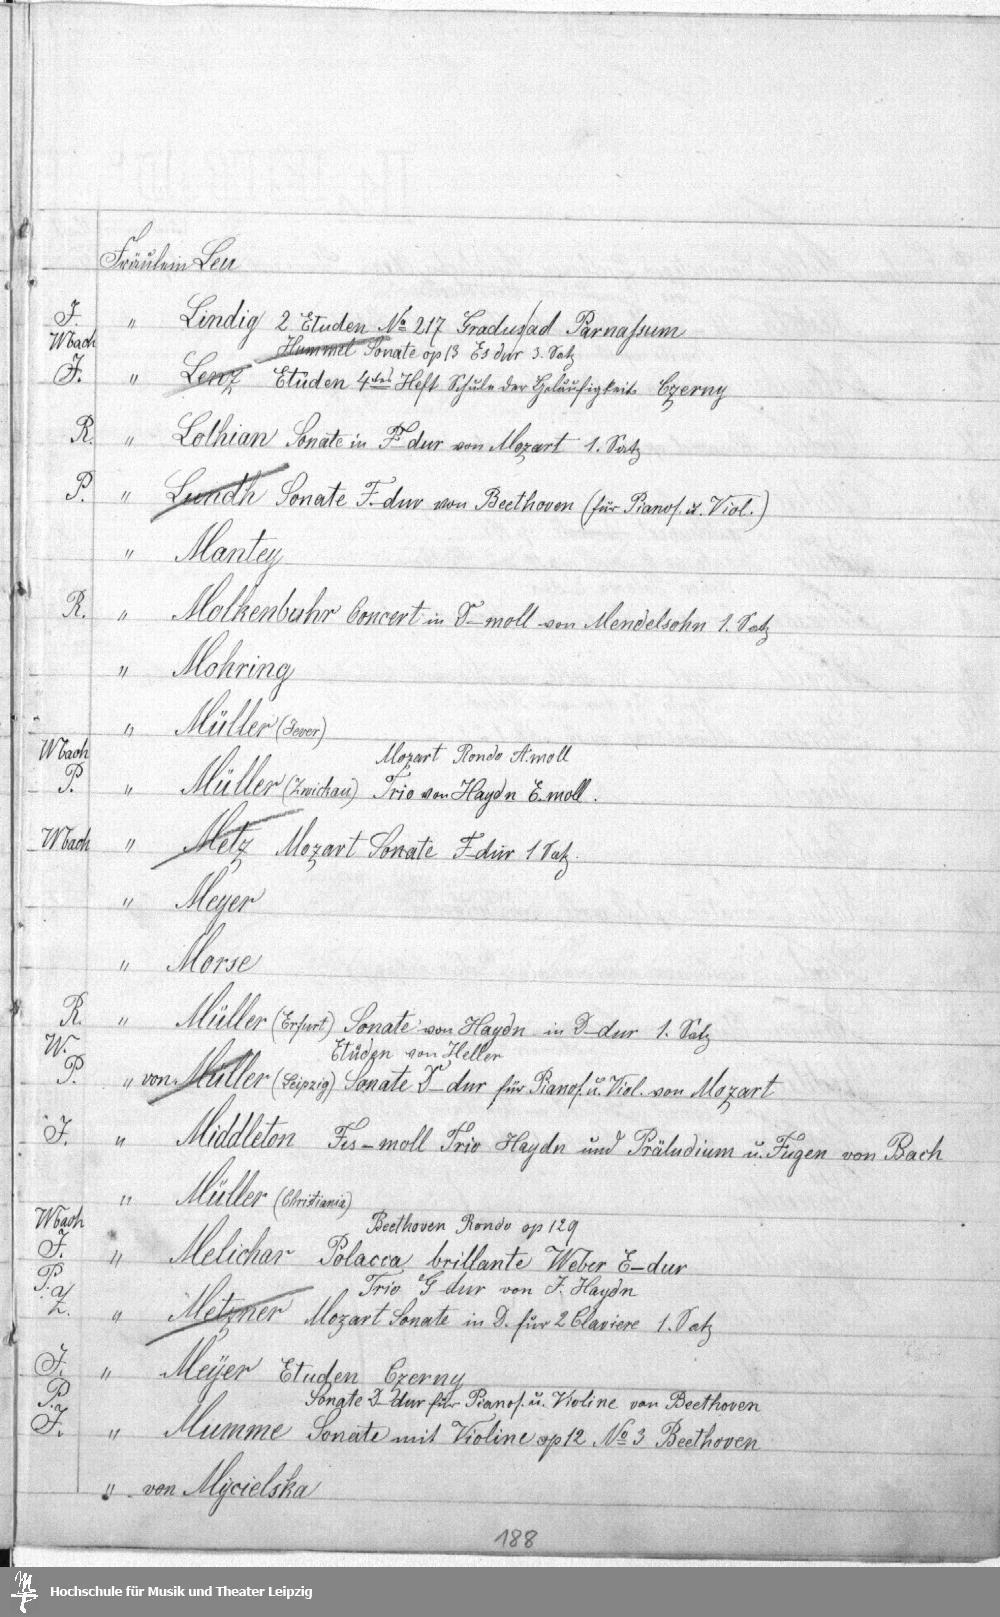 Fräulein Leu
J. " Lindig 2 Etuden No 217 Gradus ad Parnassum
Wbach Hummel Sonate op 13 Es dur 3. Satz
J. " Lenz Etüden 4tes Heft Schule der Geläufigkeit Czerny
R. " Lothian Sonate in F dur von Mozart 1. Satz
P. " Lundh Sonate F-dur von Beethoven (für Pianof. u. Viol.)
" Mantey
R. " Molkenbuhr Concert in D-moll von Mendelsohn 1. Satz
" Mohring
" Müller (Jever)
Wbach Mozart Rondo A moll
P. " Müller (Zwickau) Trio von Haydn E moll.
Wbach " Metz Mozart Sonate F-dur 1 Satz.
" Meyer
" Morse
R. " Müller (Erfurt) Sonate von Haydn in D-dur 1. Satz
W. Etüden von Heller
P. " von Müller (Leipzig) Sonate D-dur für Pianof. u. Viol. von Mozart
J. " Middleton Fis-moll Trio Haydn und Präludium u. Fugen von Bach
" Müller (Christiania)
Wbach Beethoven Rondo op 129
J. " Melichar Polacca brillante Weber E-dur
P. Trio G dur von J. Haydn
Z. " Metzner Mozart Sonate in D. für 2 Claviere 1. Satz
J. " Meÿer Etuden Czerny
P. Sonate D-dur für Pianof. u. Violine von Beethoven
J. " Mumme Sonate mit Violine op 12 No 3 Beethoven
" von Mÿcielska
188
Hochschule für Musik und Theater Leipzig